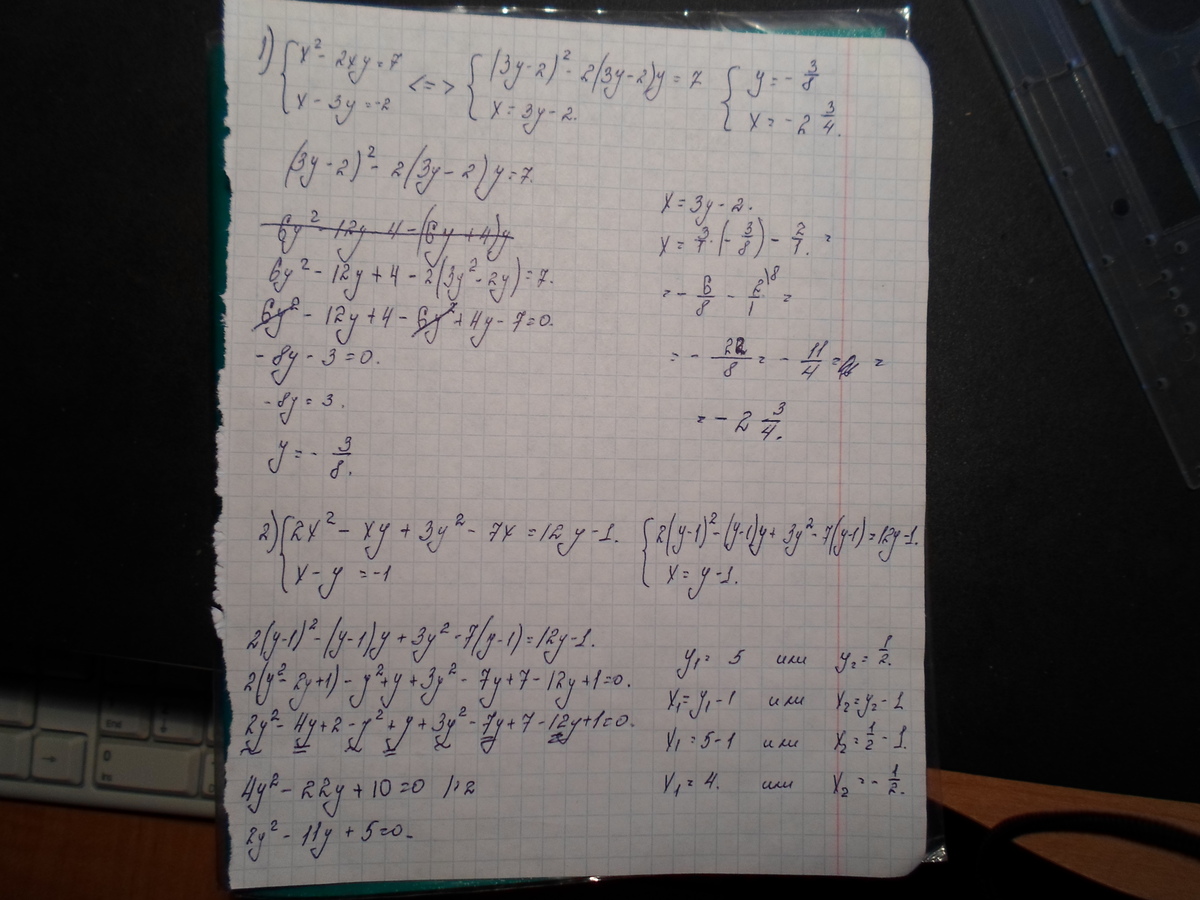 1) { x² - 2xy = 7 <=> { (3y-2)² - 2(3y-2)y = 7 { y = - 3/8
x - 3y = -2 x = 3y - 2. x = -2 3/4.
(3y-2)² - 2(3y-2)y = 7.
6y² - 12y + 4 - 2(3y² - 2y) = 7.
6y² - 12y + 4 - 6y² + 4y - 7 = 0.
- 8y - 3 = 0.
- 8y = 3.
y = - 3/8.
x = 3y - 2.
x = 3/1 · (- 3/8) - 2/1 =
= - 6/8 - 2/1 )8 =
= - 22/8 = - 11/4 = =
= - 2 3/4.
2) { 2x² - xy + 3y² - 7x = 12y - 1. { 2(y-1)² - (y-1)y + 3y² - 7(y-1) = 12y - 1.
x - y = -1 x = y - 1.
2(y-1)² - (y-1)y + 3y² - 7(y-1) = 12y - 1.
2(y² - 2y + 1) - y² + y + 3y² - 7y + 7 - 12y + 1 = 0.
2y² - 4y + 2 - y² + y + 3y² - 7y + 7 - 12y + 1 = 0.
4y² - 22y + 10 = 0 |:2
2y² - 11y + 5 = 0.
y₁ = 5 или y₂ = 1/2.
x₁ = y₁ - 1 или x₂ = y₂ - 1
x₁ = 5 - 1 или x₂ = 1/2 - 1.
x₁ = 4. или x₂ = - 1/2.